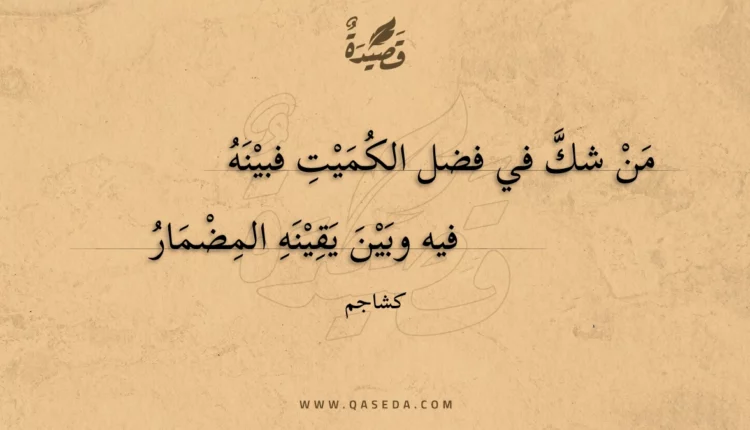 قَصِيْدَةٌ
مَنْ شكَّ في فضل الكُمَيْتِ فبيْنَهُ
فيه وبَيْنَ يَقِيْنَهِ المِضْمَارُ
كشاجم
WWW.QASEDA.COM